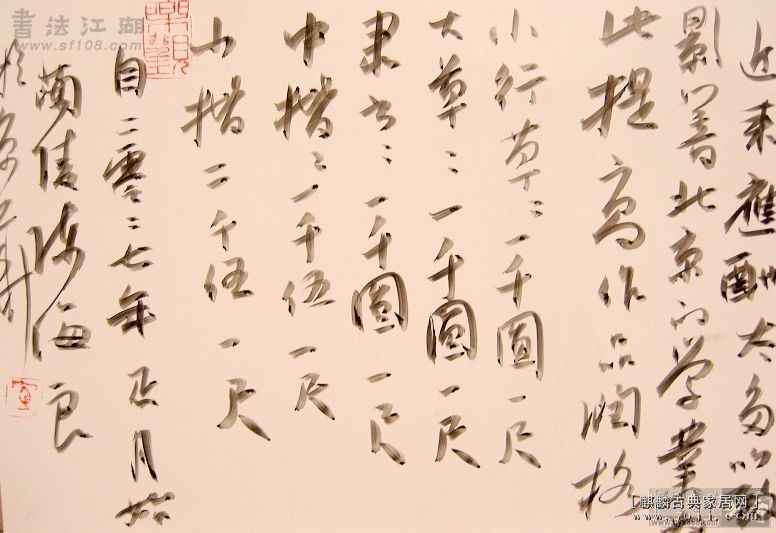 近来應酬太多以致
影響北京的学業
此提高作品润格
小行草：一千圆一尺
大草：一千圆一尺
隶书：一千圆一尺
中楷：一千伍一尺
小楷二千伍一尺
自二零〻七年正月始
蘭陵陈海良
於京
书法江湖
www.sf108.com
[麒麟古典家居网]